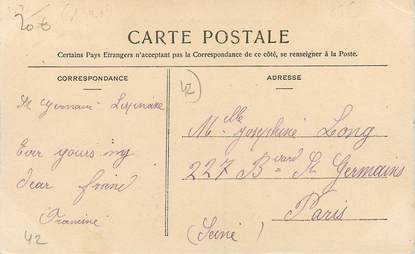 20 €
CARTE POSTALE
Certains Pays Etrangers n'acceptant pas la Correspondance de ce côté, se renseigner à la Poste.
CORRESPONDANCE
St Germain Lespinasse
Ever yours my
dear friend
Francine
42
ADRESSE
42
Melle Josephine Long
227 Berd St Germains
Paris
(Seine)